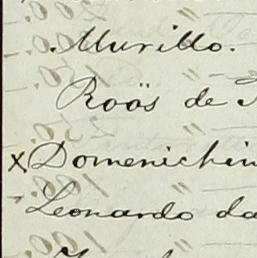 . Murillo.
Roös de
x Domenichin
Leonardo da